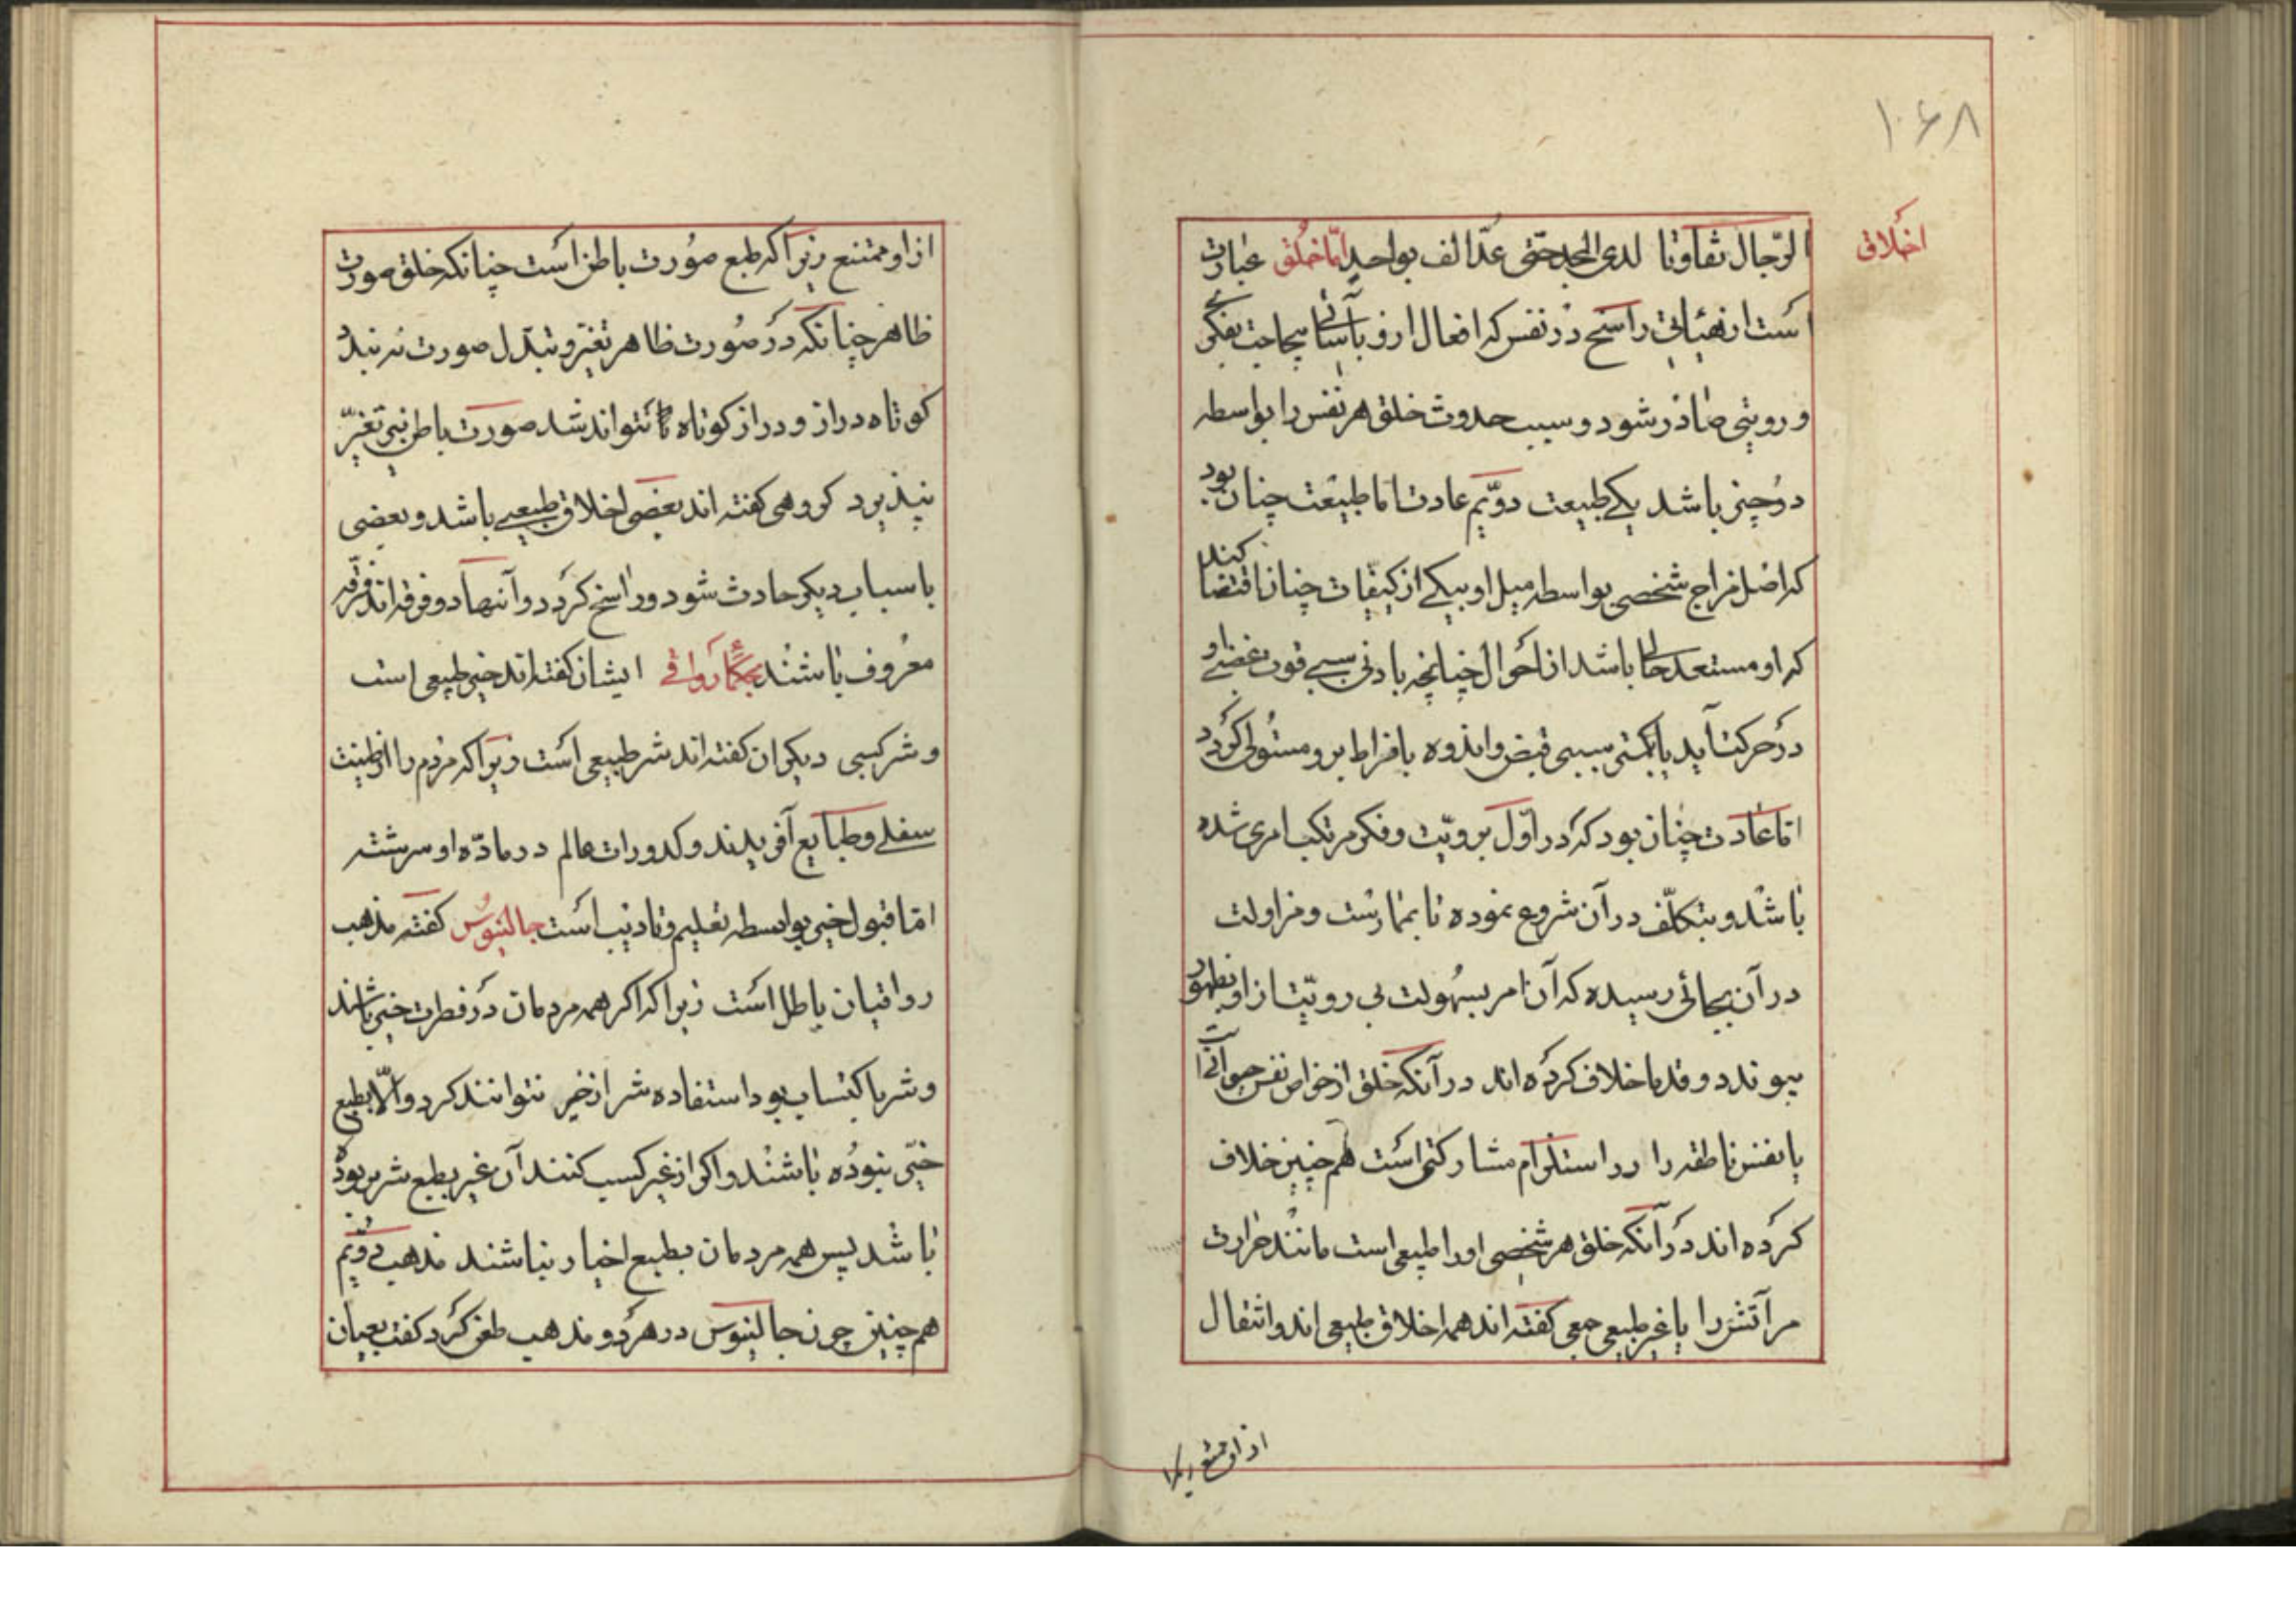 ۱۰۶۸
اخلاق
الرّجال تفاوتا لدی المجد حتی عدّ الف بواحد امّا خلق عبارت
است از هیئاتی راسخ در نفس که افعال ازو بآسانی بیحاجت بفکری
و رویتی صادر شود و سبب حدوث خلق هر نفس را بواسطه
دو چیز باشد یکی طبیعت دوّیم عادت اما طبیعت چنان بود
که اصل مزاج شخصی بواسطه میل او بیکی از کیفیات چنان اقتضا کند
که او مستعد حالی باشد از احوال چنانچه بادنی سببی قوت غضبی او
در حرکت آید یا بکمتر سببی قبض و اندوه بافراط برو مستولی گردد
امّا عادت چنان بود که در اوّل برویّت و فکر مرتکب امری شده
باشد و بتکلّف در آن شروع نموده تا بممارست و مزاولت
در آن بجائی رسیده که آن امر بسهولت بی رویّت از او بظهور
پیوندد و قدما خلاف کرده اند در آنکه خلق از خواص نفس حیوانی است
یا نفس ناطقه را در استلزام مشارکتی است هم چنین خلاف
کرده اند در آنکه خلق هر شخصی او را طبیعی است مانند حرارت
مر آتش را یا غیر طبیعی جمعی گفته اند همه اخلاق طبیعی اند و انتقال
از او ممتنع زیرا
از او ممتنع زیرا که طبع صورت باطن است چنانکه خلق صورت
ظاهر چنانکه در صورت ظاهر تغیّر و تبدّل صورت نه بندد
کوتاه دراز و دراز کوتاه نتواند شد صورت باطن نیز تغیّر
نپذیرد گروهی گفته اند بعضی اخلاق طبیعی باشد و بعضی
باسباب دیگر حادث شود و راسخ گردد و آنها دو فرقه اند فرقه
معروف باشند بحکماء رواقی ایشان گفته اند خیر طبیعی است
و شر کسبی دیگران گفته اند شر طبیعی است زیرا که مردم را از طینت
سفلی و طبایع آفریدند و کدورات عالم در مادّه او سرشته
امّا قبول خیر بواسطه تعلیم و تادیب است جالینوس گفته مذهب
رواقیان باطل است زیرا که اگر همه مردمان در فطرت خیر باشند
و شر باکتساب بود استفاده شر از خیر نتوانند کرد و الّا بطبع
خیّر نبوده باشند و اگر از غیر کسب کنند آن غیر بطبع شریر بوده
باشد پس همه مردمان بطبع اخیار نباشند مذهب دویّم
هم چنین چون جالینوس در هر دو مذهب طعن کرد گفت بعیان